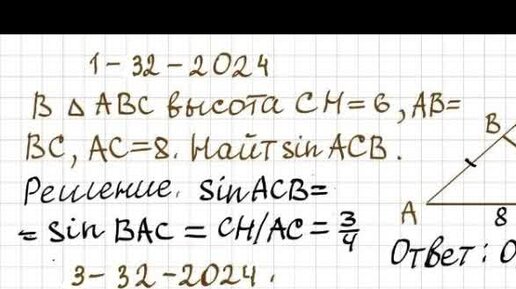 1-32-2024
В △ ABC высота CH=6, AB=
BC, AC=8. Найт sin ACB.
Решение. sin ACB=
= sin BAC = CH/AC = 3/4
3-32-2024.
B
A
8
Ответ: 0